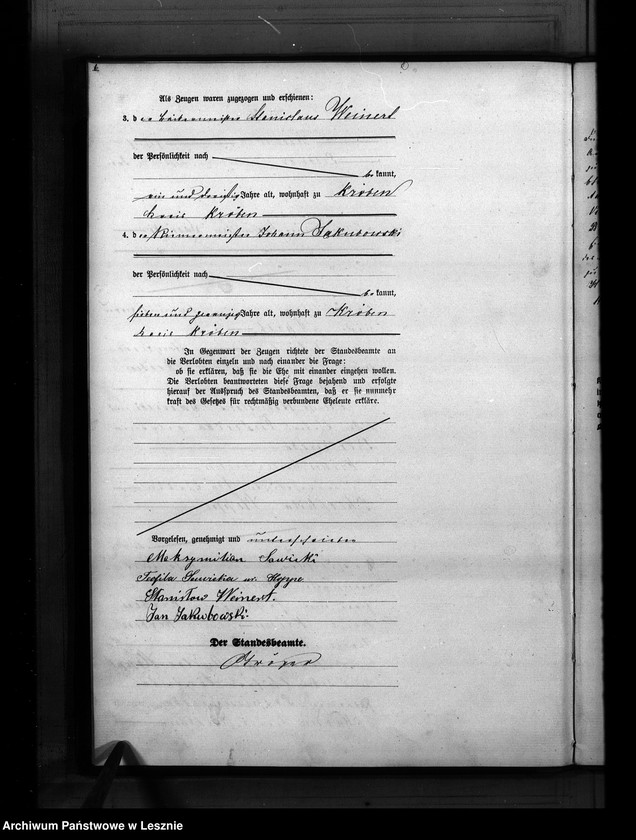 Als Zeugen waren zugezogen und erschienen:
3. der Stanislaus Weinert
der Persönlichkeit nach
be kannt,
ein und dreißig Jahre alt, wohnhaft zu Kröben
Kreis Kröben
4. der Johann Jakubowski
der Persönlichkeit nach
be kannt,
sieben und zwanzig Jahre alt, wohnhaft zu Kröben
Kreis Kröben
In Gegenwart der Zeugen richtete der Standesbeamte an
die Verlobten einzeln und nach einander die Frage:
ob sie erklären, daß sie die Ehe mit einander eingehen wollen.
Die Verlobten beantworteten diese Frage bejahend und erfolgte
hierauf der Ausspruch des Standesbeamten, daß er sie nunmehr
kraft des Gesetzes für rechtmäßig verbundene Eheleute erkläre.
Vorgelesen, genehmigt und unterschrieben
Maksymilian Sawicki
Teofila Sawicka
Stanisław Weinert.
Jan Jakubowski.
Der Standesbeamte.
Archiwum Państwowe w Lesznie